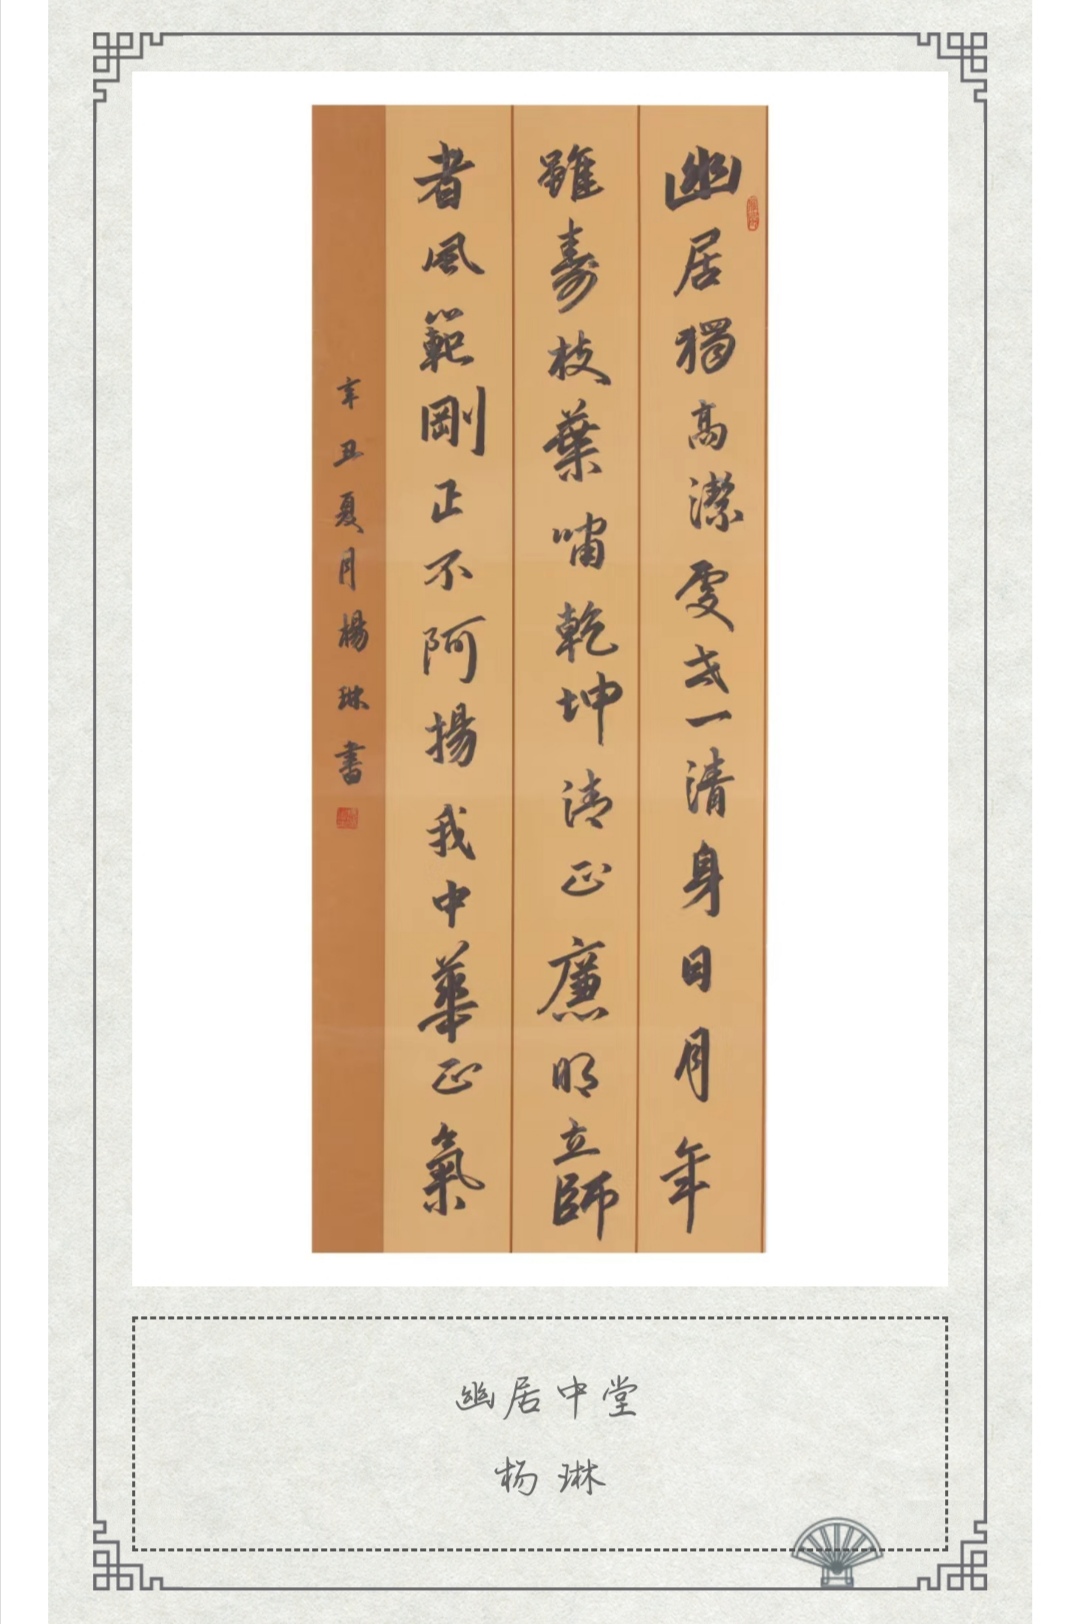 幽居獨高潔處世一清身日月年
雖壽枝葉嘯乾坤清正廉明立師
者風範剛正不阿揚我中華正氣
辛丑夏月楊琳書
幽居中堂
杨琳